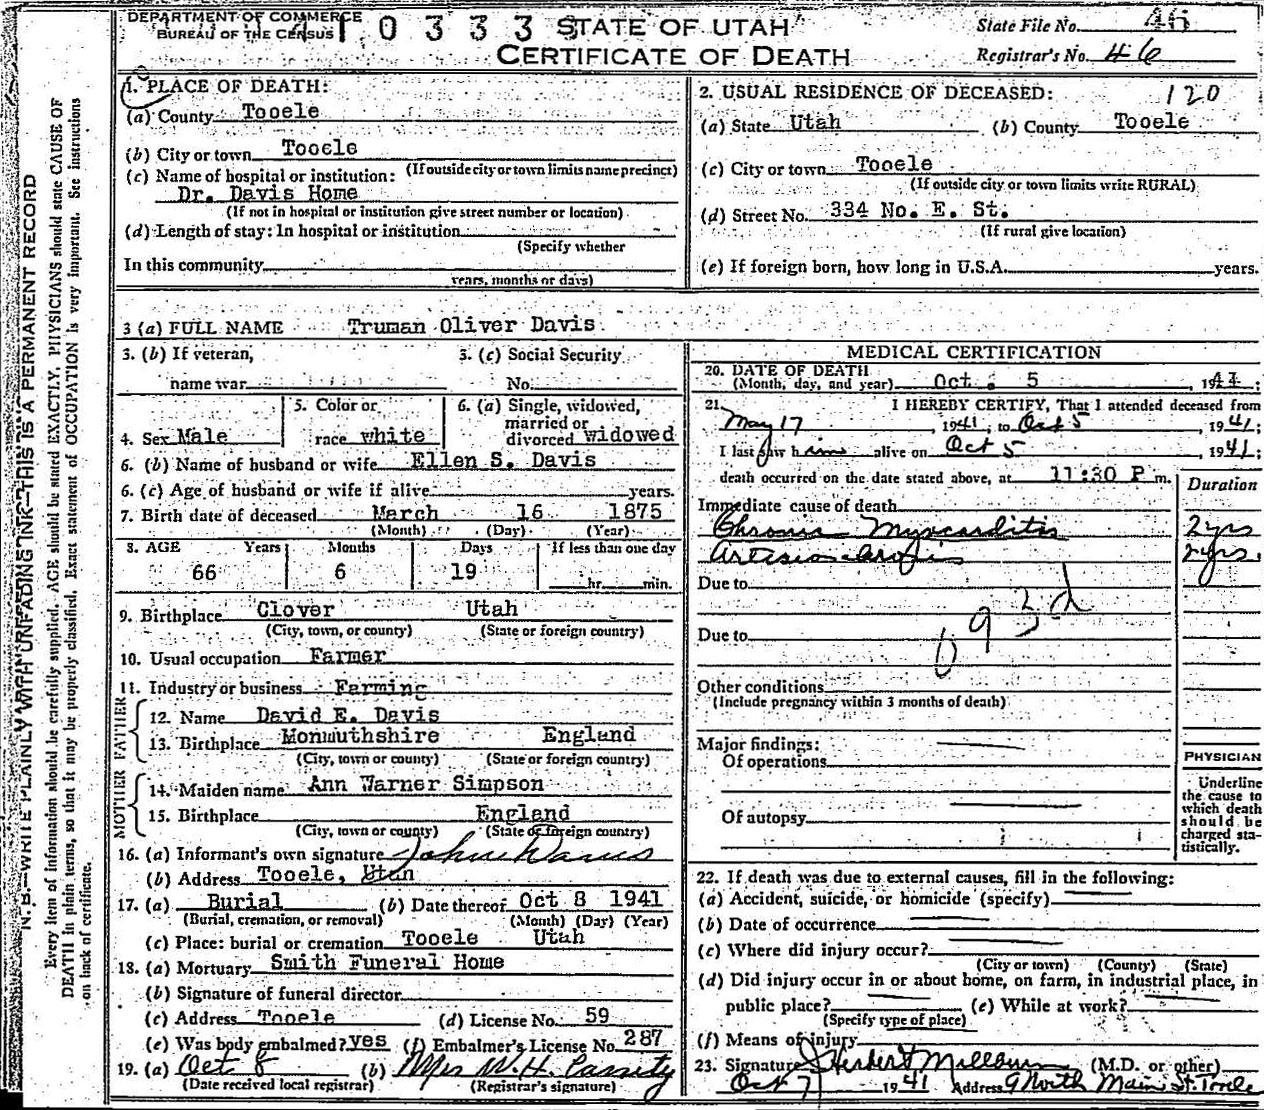 DEPARTMENT OF COMMERCE
BUREAU OF THE CENSUS
10333 STATE OF UTAH
CERTIFICATE OF DEATH
State File No. 46
Registrar's No. 46
N. B.—WRITE PLAINLY WITH UNFADING INK—THIS IS A PERMANENT RECORD
Every item of information should be carefully supplied. AGE should be stated EXACTLY. PHYSICIANS should state CAUSE OF
DEATH in plain terms, so that it may be properly classified. Exact statement of OCCUPATION is very important. See instructions
on back of certificate.
1. PLACE OF DEATH:
(a) County Tooele
(b) City or town Tooele
(If outside city or town limits name precinct)
(c) Name of hospital or institution:
Dr. Davis Home
(If not in hospital or institution give street number or location)
(d) Length of stay: In hospital or institution
(Specify whether
In this community
years, months or days)
2. USUAL RESIDENCE OF DECEASED: 120
(a) State Utah (b) County Tooele
(c) City or town Tooele
(If outside city or town limits write RURAL)
(d) Street No. 334 No. E. St.
(If rural give location)
(e) If foreign born, how long in U.S.A. years.
3 (a) FULL NAME Truman Oliver Davis
3. (b) If veteran, 3. (c) Social Security
name war No.
4. Sex Male 5. Color or race white 6. (a) Single, widowed, married or divorced widowed
6. (b) Name of husband or wife Ellen S. Davis
6. (c) Age of husband or wife if alive years.
7. Birth date of deceased March 16 1875
(Month) (Day) (Year)
8. AGE Years Months Days If less than one day
66 6 19 hr. min.
9. Birthplace Clover Utah
(City, town, or county) (State or foreign country)
10. Usual occupation Farmer
11. Industry or business Farming
FATHER
12. Name David E. Davis
13. Birthplace Monmouthshire England
(City, town or county) (State or foreign country)
MOTHER
14. Maiden name Ann Warner Simpson
15. Birthplace England
(City, town or county) (State or foreign country)
16. (a) Informant's own signature John
(b) Address Tooele, Utah
17. (a) Burial (b) Date thereof Oct 8 1941
(Burial, cremation, or removal) (Month) (Day) (Year)
(c) Place: burial or cremation Tooele Utah
18. (a) Mortuary Smith Funeral Home
(b) Signature of funeral director
(c) Address Tooele (d) License No. 59
(e) Was body embalmed? yes (f) Embalmer's License No. 287
19. (a) Oct 8 (b) Mrs W. H. Cassity
(Date received local registrar) (Registrar's signature)
MEDICAL CERTIFICATION
20. DATE OF DEATH
(Month, day, and year) Oct. 5, 1941;
21. I HEREBY CERTIFY, That I attended deceased from
May 17, 1941, to Oct 5, 1941;
I last saw him alive on Oct 5, 1941;
death occurred on the date stated above, at 11:30 P m.
Duration
Immediate cause of death
Chronic Myocarditis 2 yrs
2 yrs.
Due to
093d
Due to
Other conditions
(Include pregnancy within 3 months of death)
Major findings:
Of operations
Of autopsy
PHYSICIAN
Underline
the cause to
which death
should be
charged sta-
tistically.
22. If death was due to external causes, fill in the following:
(a) Accident, suicide, or homicide (specify)
(b) Date of occurrence
(c) Where did injury occur?
(City or town) (County) (State)
(d) Did injury occur in or about home, on farm, in industrial place, in
public place? (e) While at work?
(Specify type of place)
(f) Means of injury
23. Signature J Herbert Millburn (M.D. or other)
Oct 7 1941 Address 9 North Main St. Tooele